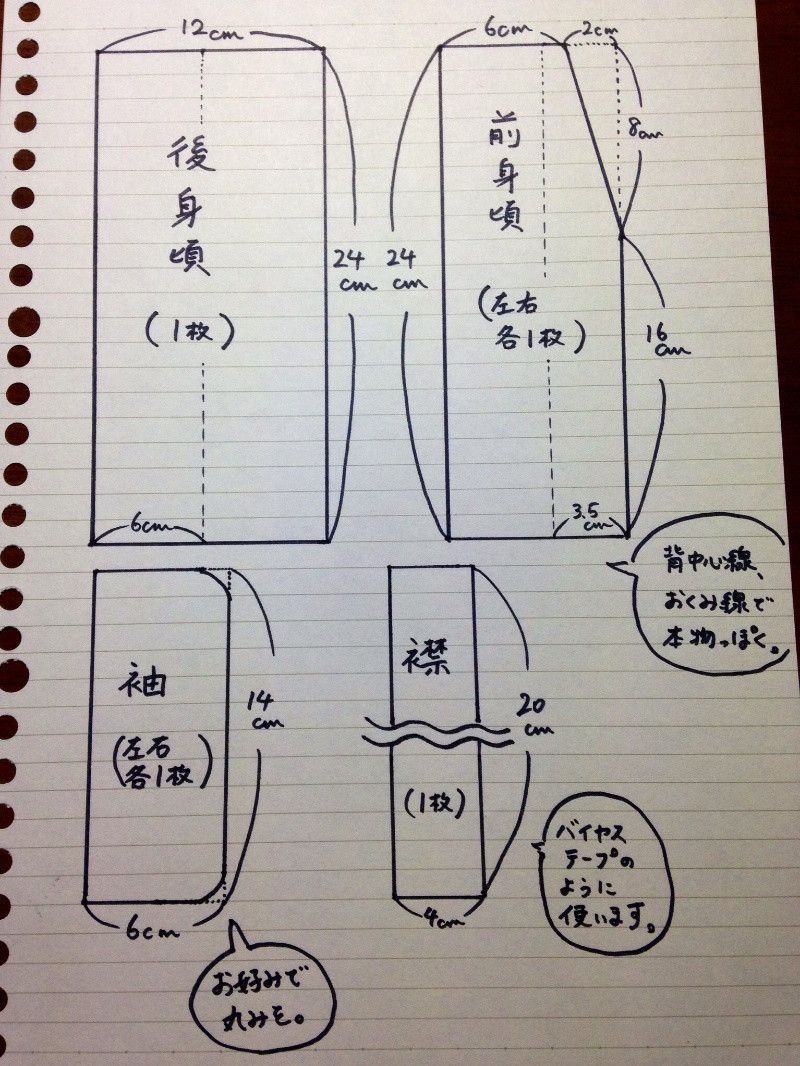 12cm
後身頃
(1枚)
24cm
6cm
6cm
2cm
8cm
前身頃
(左右
各1枚)
24cm
16cm
3.5cm
背中心線、
おくみ線で
本物っぽく。
袖
(左右
各1枚)
14cm
6cm
お好みで
丸みを。
襟
(1枚)
20cm
4cm
バイヤス
テープの
ように
使います。